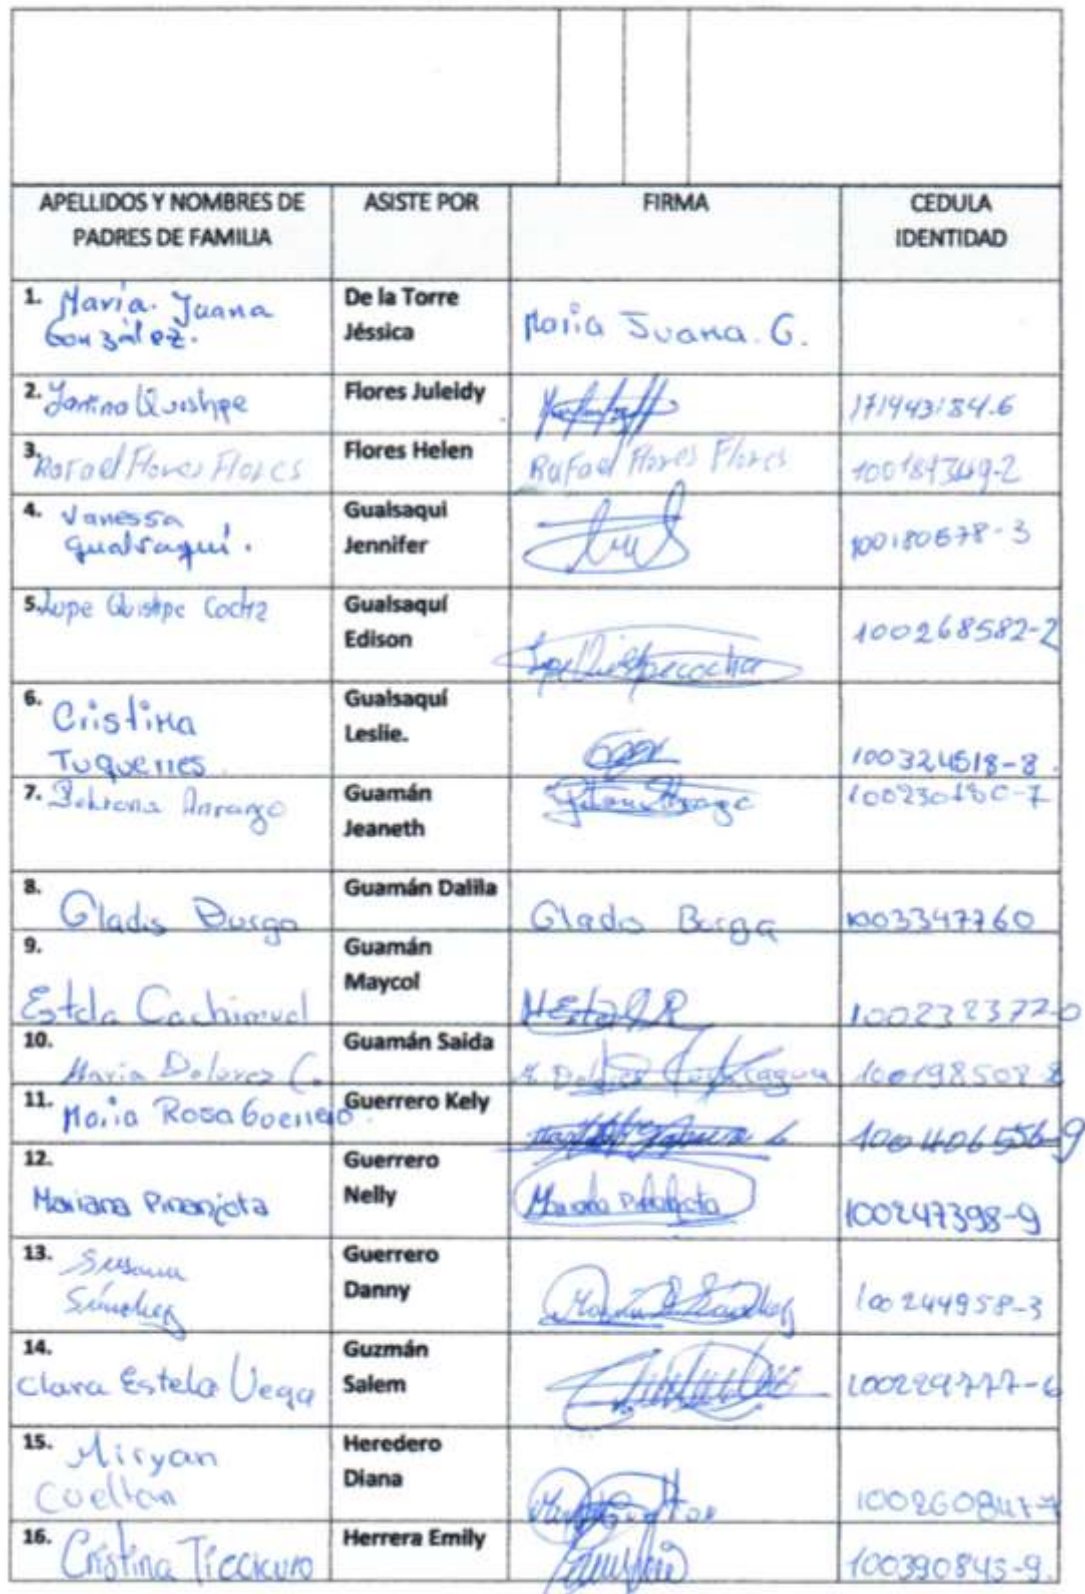 APELLIDOS Y NOMBRES DE PADRES DE FAMILIA ASISTE POR FIRMA CEDULA IDENTIDAD
1. María. Juana González. De la Torre Jéssica María Juana. G.
2. Quishpe Flores Juleidy 171943184-6
3. Rafael Flores Flores Flores Helen Rafael Flores Flores
4. Vanessa Gualsaqui. Gualsaqui Jennifer 100180678-3
5. Lupe Quishpe Gualsaquí Edison 100268582-2
6. Cristina Tuquerres. Gualsaquí Leslie. 100324518-8.
7. Guamán Jeaneth
8. Gladis Burga Guamán Dalila Glads Burga 1003347760
9. Estela Cachimuel Guamán Maycol 100238372-0
10. María Dolores C. Guamán Saida 100198508-8
11. María Rosa Guerrero. Guerrero Kely 100406556-9
12. Mariana Guerrero Nelly Mariana 100247398-9
13. Susana Sánchez Guerrero Danny 100244958-3
14. Clara Estela Vega Guzmán Salem 100229777-6
15. Miryan Heredero Diana
16. Cristina Herrera Emily 100390845-9.